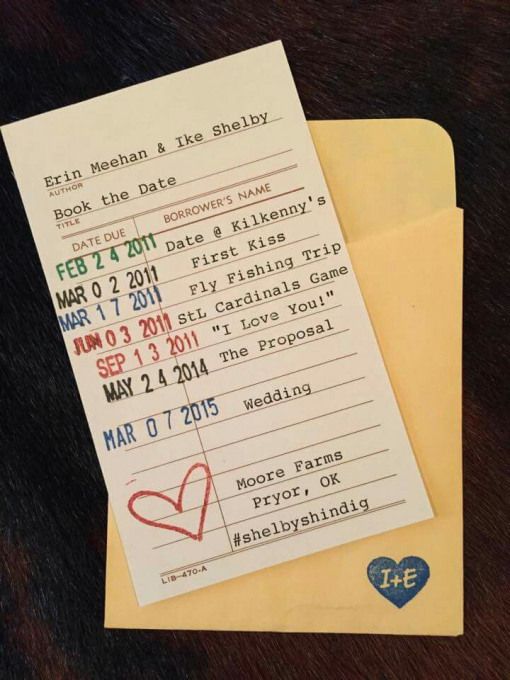 Erin Meehan & Ike Shelby
AUTHOR
Book the Date
TITLE
DATE DUE BORROWER'S NAME
FEB 24 2011 Date @ Kilkenny's
MAR 02 2011 First Kiss
MAR 17 2011 Fly Fishing Trip
JUN 03 2011 StL Cardinals Game
SEP 13 2011 "I Love You!"
MAY 24 2014 The Proposal
MAR 07 2015 Wedding
Moore Farms
Pryor, OK
#shelbyshindig
LIB-470-A
I+E